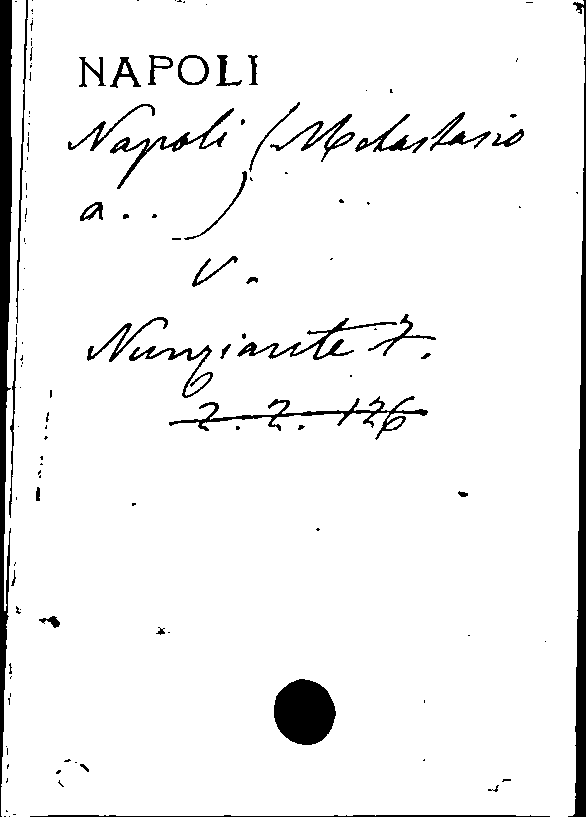 NAPOLI
Napoli (Metastasio
a . . )
V.
Nunziante F.
2. 2. 126